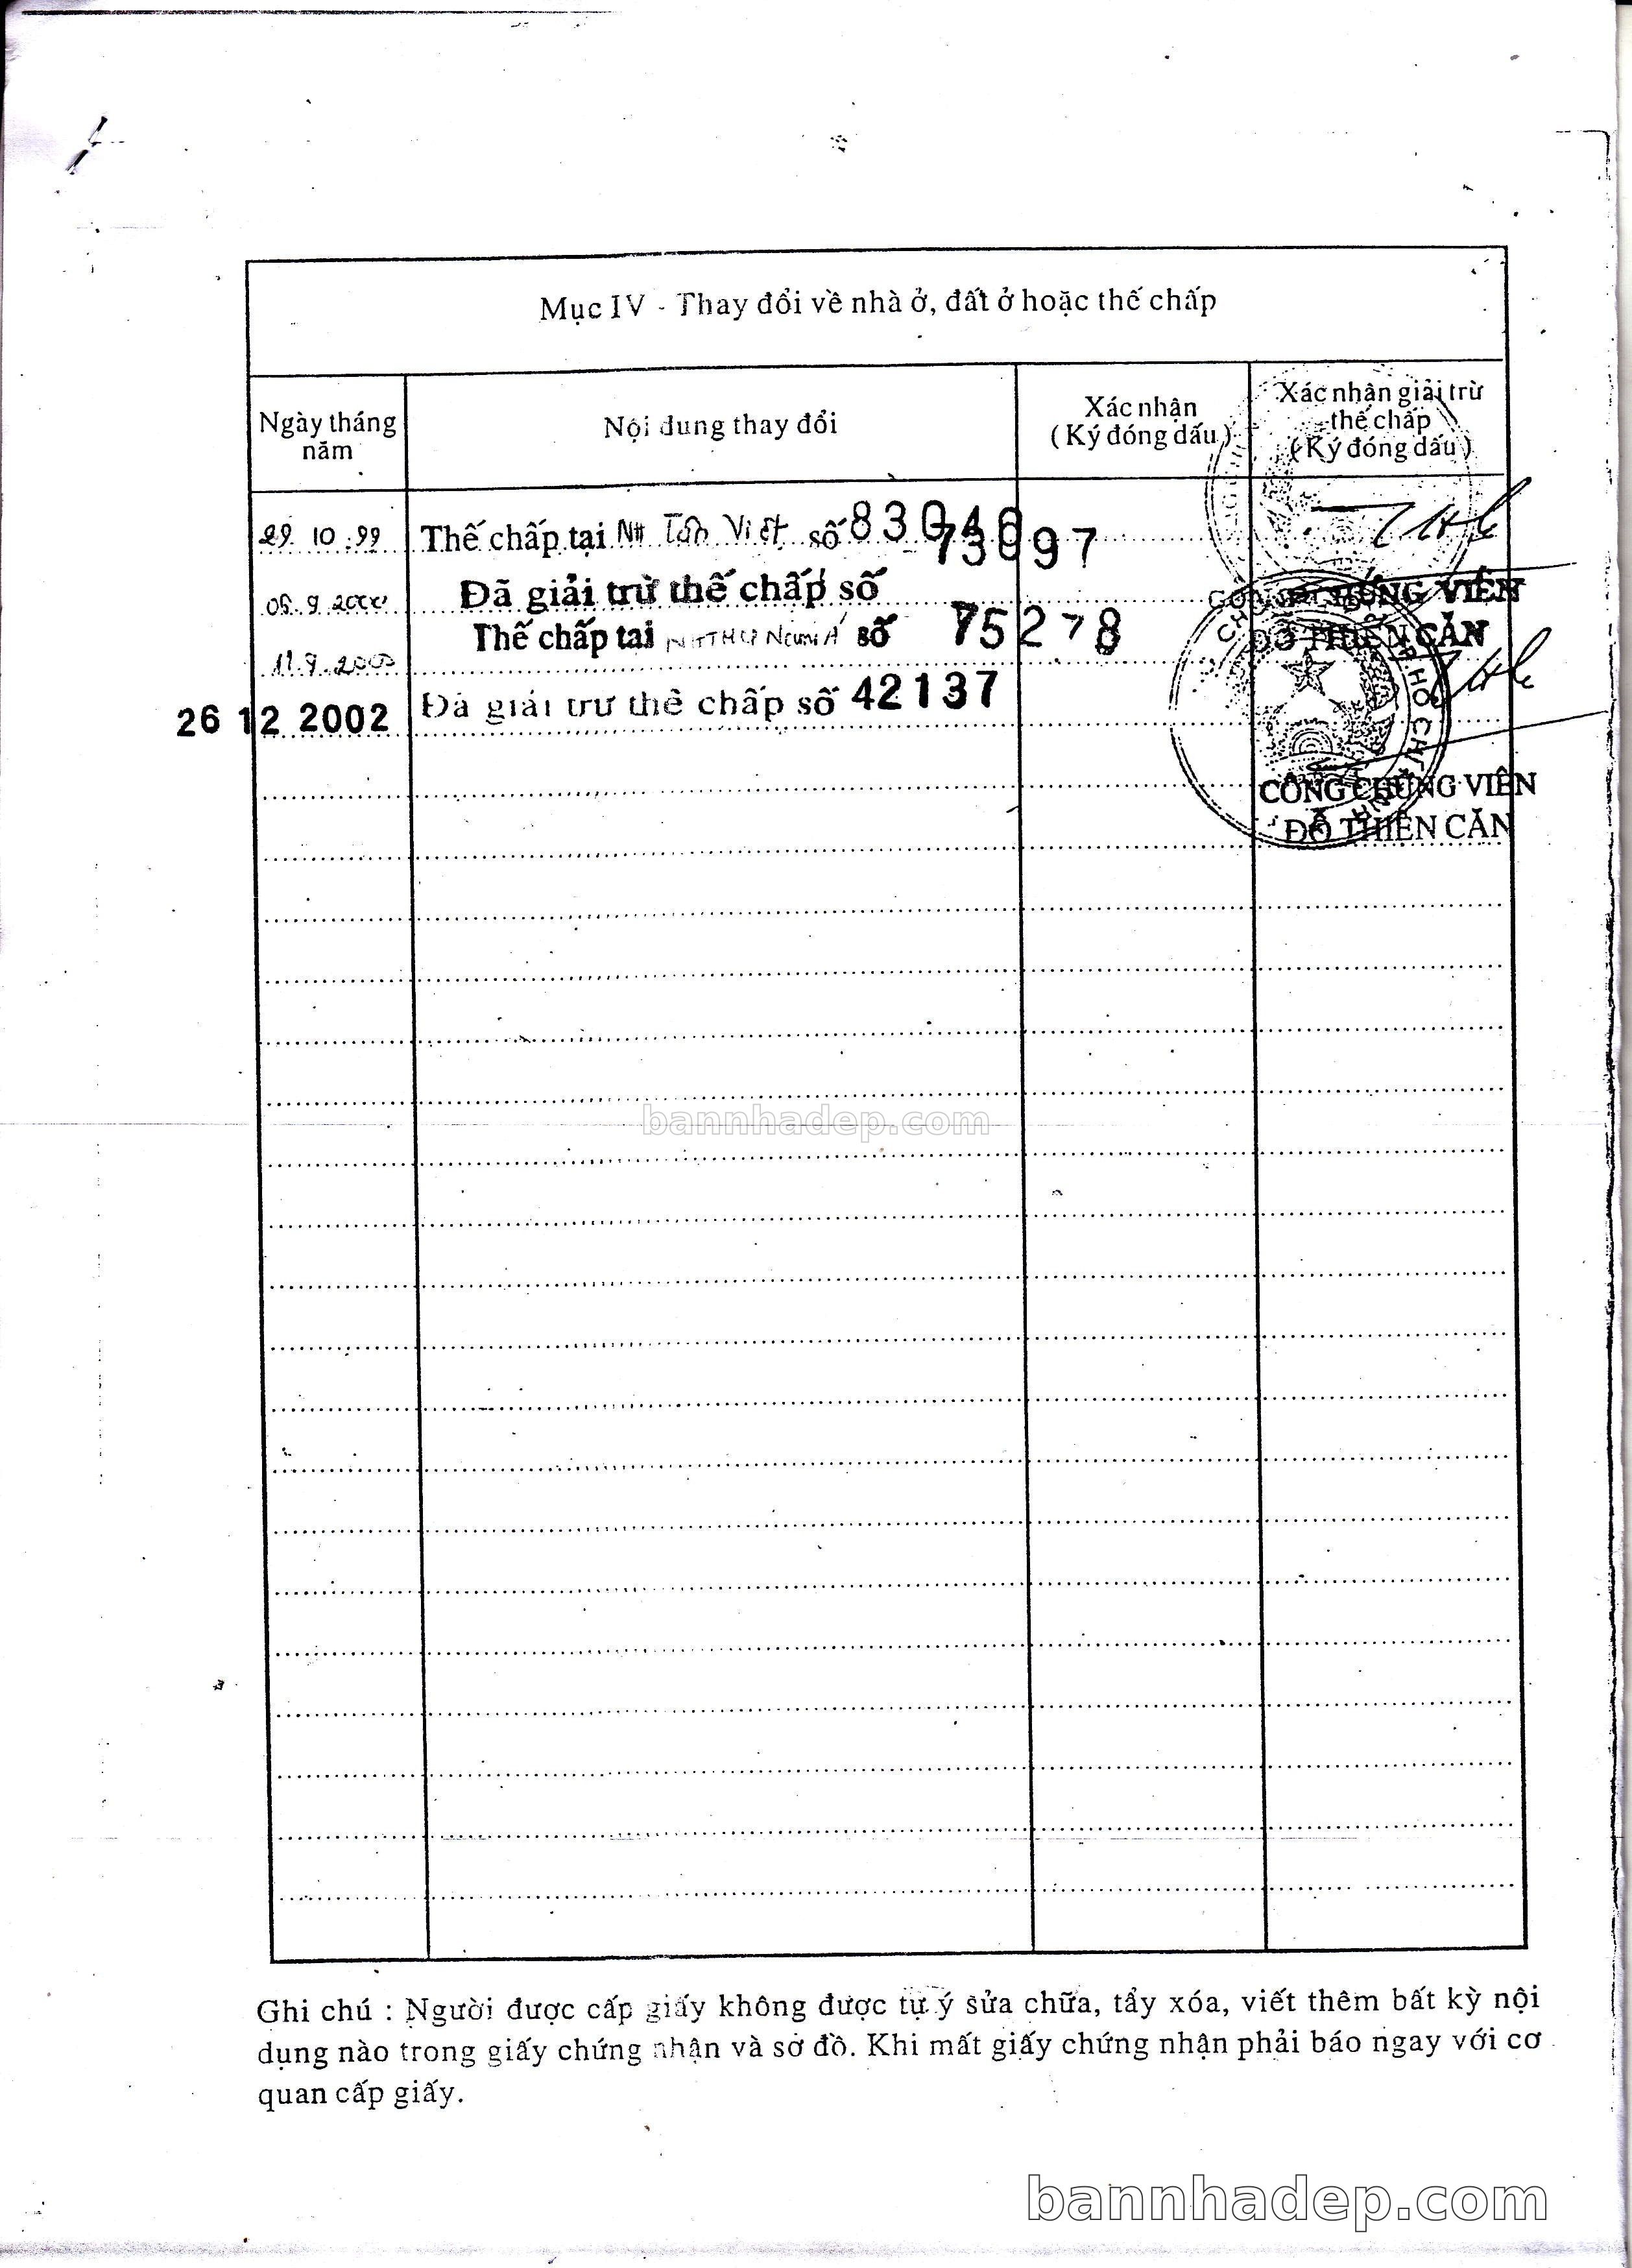 Mục IV - Thay đổi về nhà ở, đất ở hoặc thế chấp
Ngày tháng năm
Nội dung thay đổi
Xác nhận
( Ký đóng dấu )
Xác nhận giải trừ
thế chấp
( Ký đóng dấu )
29 10 . 99 Thế chấp tại NH Tân Việt số
73697
Đã giải trừ thế chấp số
9 2000
CÔNG CHỨNG VIÊN
Thế chấp tại số 75278
ĐỖ THIÊN CĂN
11.9.2000
26 12 2002 Đã giải trừ thế chấp số 42137
CÔNG CHỨNG VIÊN
ĐỖ THIÊN CĂN
bannhadep.com
Ghi chú : Người được cấp giấy không được tự ý sửa chữa, tẩy xóa, viết thêm bất kỳ nội
dung nào trong giấy chứng nhận và sơ đồ. Khi mất giấy chứng nhận phải báo ngay với cơ
quan cấp giấy.
bannhadep.com